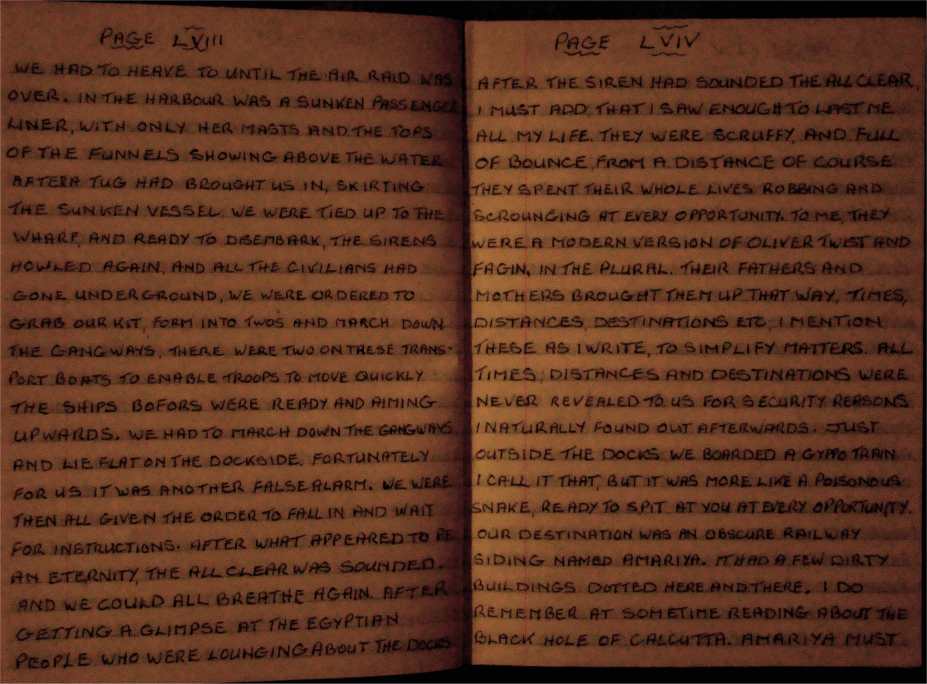 PAGE LVIII
WE HAD TO HEAVE TO UNTIL THE AIR RAID WAS
OVER. IN THE HARBOUR WAS A SUNKEN PASSENGER
LINER, WITH ONLY HER MASTS AND THE TOPS
OF THE FUNNELS SHOWING ABOVE THE WATER
AFTER A TUG HAD BROUGHT US IN, SKIRTING
THE SUNKEN VESSEL. WE WERE TIED UP TO THE
WHARF, AND READY TO DISEMBARK, THE SIRENS
HOWLED AGAIN, AND ALL THE CIVILIANS HAD
GONE UNDERGROUND, WE WERE ORDERED TO
GRAB OUR KIT, FORM INTO TWOS AND MARCH DOWN
THE GANGWAYS, THERE WERE TWO ON THESE TRANS-
PORT BOATS TO ENABLE TROOPS TO MOVE QUICKLY
THE SHIPS BOFORS WERE READY AND AIMING
UPWARDS. WE HAD TO MARCH DOWN THE GANGWAYS
AND LIE FLAT ON THE DOCKSIDE. FORTUNATELY
FOR US IT WAS ANOTHER FALSE ALARM. WE WERE
THEN ALL GIVEN THE ORDER TO FALL IN AND WAIT
FOR INSTRUCTIONS. AFTER WHAT APPEARED TO BE
AN ETERNITY, THE ALL CLEAR WAS SOUNDED.
AND WE COULD ALL BREATHE AGAIN. AFTER
GETTING A GLIMPSE AT THE EGYPTIAN
PEOPLE WHO WERE LOUNGING ABOUT THE DOCKS
PAGE LVIV
AFTER THE SIREN HAD SOUNDED THE ALL CLEAR,
I MUST ADD, THAT I SAW ENOUGH TO LAST ME
ALL MY LIFE. THEY WERE SCRUFFY, AND FULL
OF BOUNCE, FROM A DISTANCE OF COURSE
THEY SPENT THEIR WHOLE LIVES ROBBING AND
SCROUNGING AT EVERY OPPORTUNITY. TO ME, THEY
WERE A MODERN VERSION OF OLIVER TWIST AND
FAGIN, IN THE PLURAL. THEIR FATHERS AND
MOTHERS BROUGHT THEM UP THAT WAY, TIMES,
DISTANCES, DESTINATIONS ETC, I MENTION
THESE AS I WRITE, TO SIMPLIFY MATTERS. ALL
TIMES, DISTANCES AND DESTINATIONS WERE
NEVER REVEALED TO US FOR SECURITY REASONS
I NATURALLY FOUND OUT AFTERWARDS. JUST
OUTSIDE THE DOCKS WE BOARDED A GYPPO TRAIN
I CALL IT THAT, BUT IT WAS MORE LIKE A POISONOUS
SNAKE, READY TO SPIT AT YOU AT EVERY OPPORTUNITY.
OUR DESTINATION WAS AN OBSCURE RAILWAY
SIDING NAMED AMARIYA. IT HAD A FEW DIRTY
BUILDINGS DOTTED HERE AND THERE. I DO
REMEMBER AT SOMETIME READING ABOUT THE
BLACK HOLE OF CALCUTTA. AMARIYA MUST